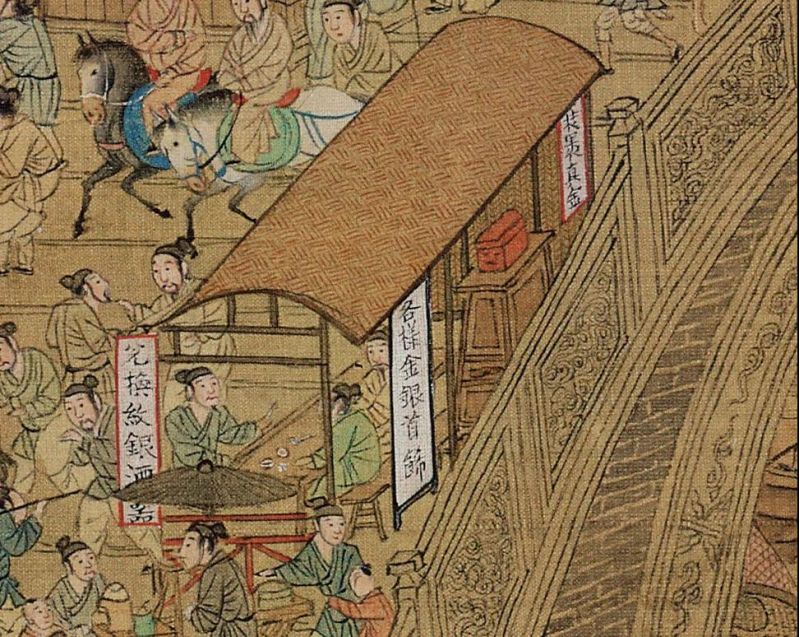 真金
各樣金銀首飾
兌換紋銀酒器